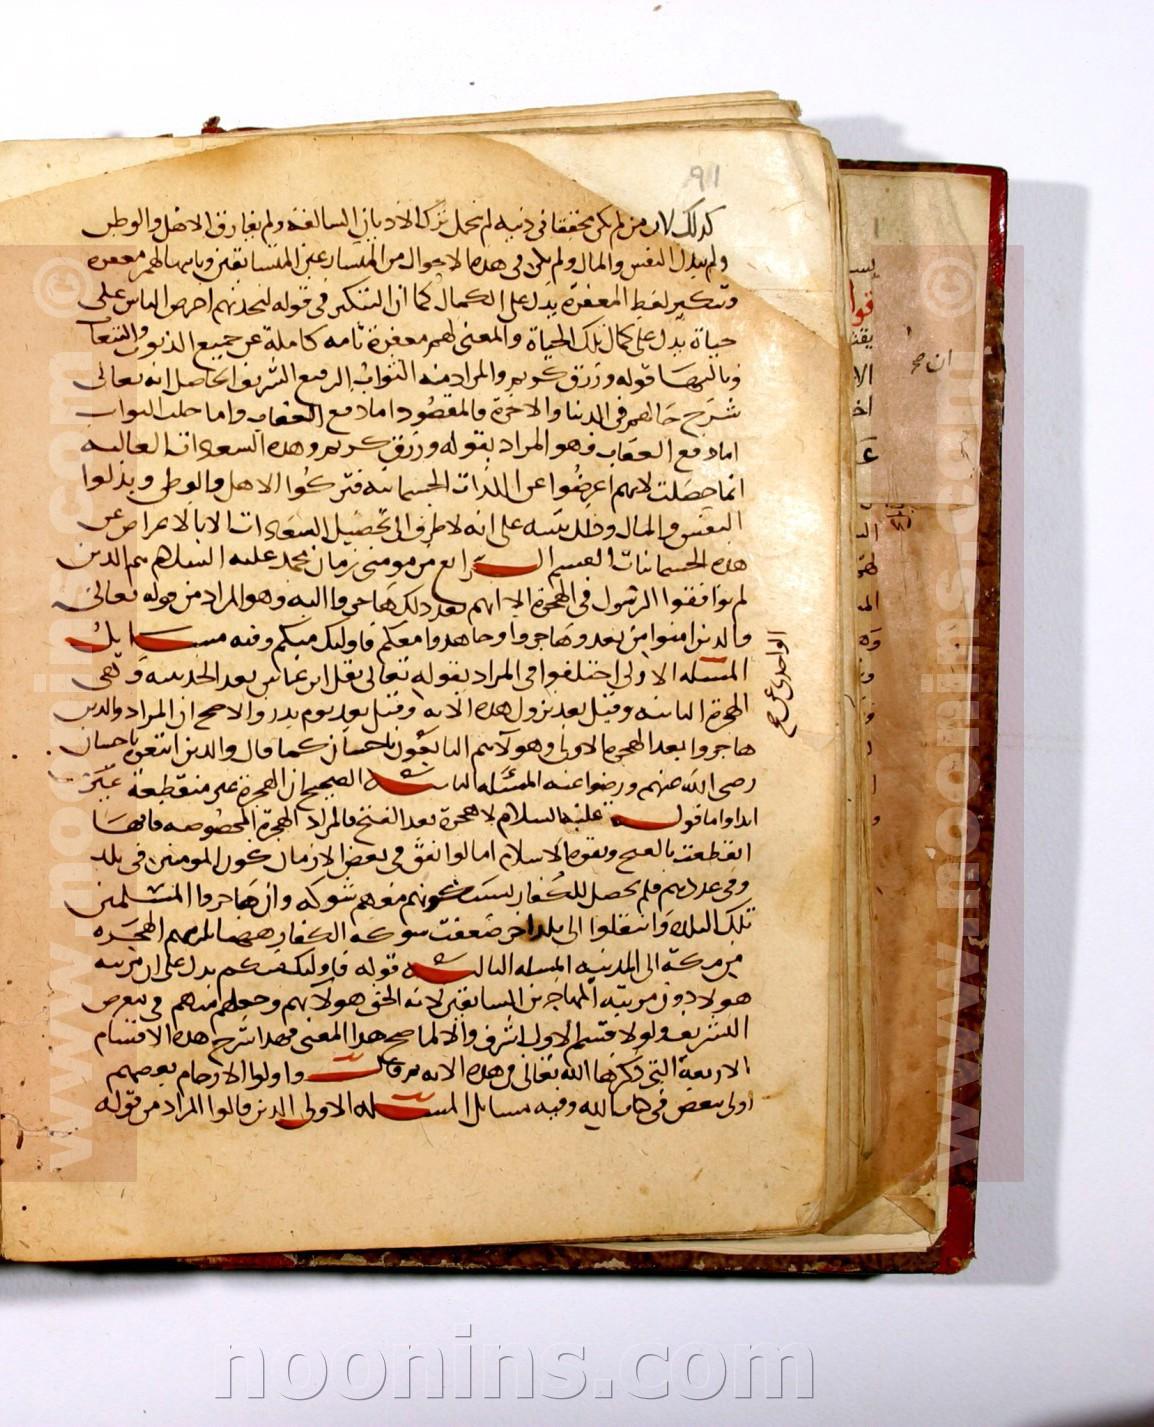 ٩١
كذلك لان من لم يكن محققا في دينه لم يتحمل ترك الاديان السالفة ولم يفارق الاهل والوطن
ولم يبذل النفس والمال ولم يكن في هذه الاحوال من المتسارعين المتسابقين وثانيها لهم مغفرة
وتنكير لفظ المغفرة يدل على الكمال كما ان التنكير في قوله لتجدنهم احرص الناس على
حياة يدل على كمال تلك الحياة والمعنى لهم مغفرة تامه كاملة عن جميع الذنوب والتبعات
وثالثها قوله ورزق كريم والمراد منه الثواب الرفيع الشريف الحاصل انه تعالى
شرح حالهم في الدنيا والاخرة فالمقصود اما دفع العقاب واما جلب الثواب
اما دفع العقاب فهو المراد بقوله ورزق كريم وهذه السعادات العاليه
انما حصلت لانهم اعرضوا عن اللذات الجسمانيه فتركوا الاهل والوطن وبذلوا
النفس والمال وذلك تنبيه على انه لا طريق الى تحصيل السعادات الا بالاعراض عن
هذه الجسمانيات القسم الرابع من مومني زمان محمد عليه السلام هم الذين
لم يوافقوا الرسول في الهجرة الا انهم بعد ذلك هاجروا اليه وهو المراد من قوله تعالى
والذين امنوا من بعد وهاجروا وجاهدوا معكم فاوليك منكم وفيه مسايل
المسله الاولى اختلفوا في المراد بقوله تعالى نقل ابن عباس بعد الحديبيه وهي
الهجرة الثانيه وقيل بعد نزول هذه الايه وقيل بعد يوم بدر والاصح ان المراد والذين
هاجروا بعد الهجرة الاولى وهولآء هم التابعون باحسان كما قال والذين اتبعوهم باحسان
رضى الله عنهم ورضوا عنه المسئله الثانيه الصحيح ان الهجرة غير منقطعة
ابدا واما قوله عليه السلام لا هجرة بعد الفتح فالمراد الهجرة المخصوصه فانها
انقطعت بالفتح وبقوة الاسلام اما لو اتفق في بعض الازمان كون المومنين في بلد
وفي عددهم قلة يحصل للكفار بسبب كونهم معهم شوكه وان هاجروا المسلمين
تلك البلدة وانتقلوا الى بلد اخر ضعفت شوكه الكفار فههنا تلزمهم الهجره
من مكة الى المدينه المسله الثالثه قوله فاوليك منكم يدل على ان مرتبه
هولا دون مرتبة المهاجرين السابقين لانه الحق هولاء بهم وجعلهم منهم في معرض
التشريف ولولا قسم الاول اشرف والا لما صح هذا المعنى فهذا شرح هذه الاقسام
الاربعة التي ذكرها الله تعالى في هذه الايه ثم قال واولوا الارحام بعضهم
اولى ببعض في كتاب الله وفيه مسايل المسله الاولى الذين قالوا المراد من قوله
الواحدى عن
ان
www.noonins.com ©
www.noonins.com ©
noonins.com